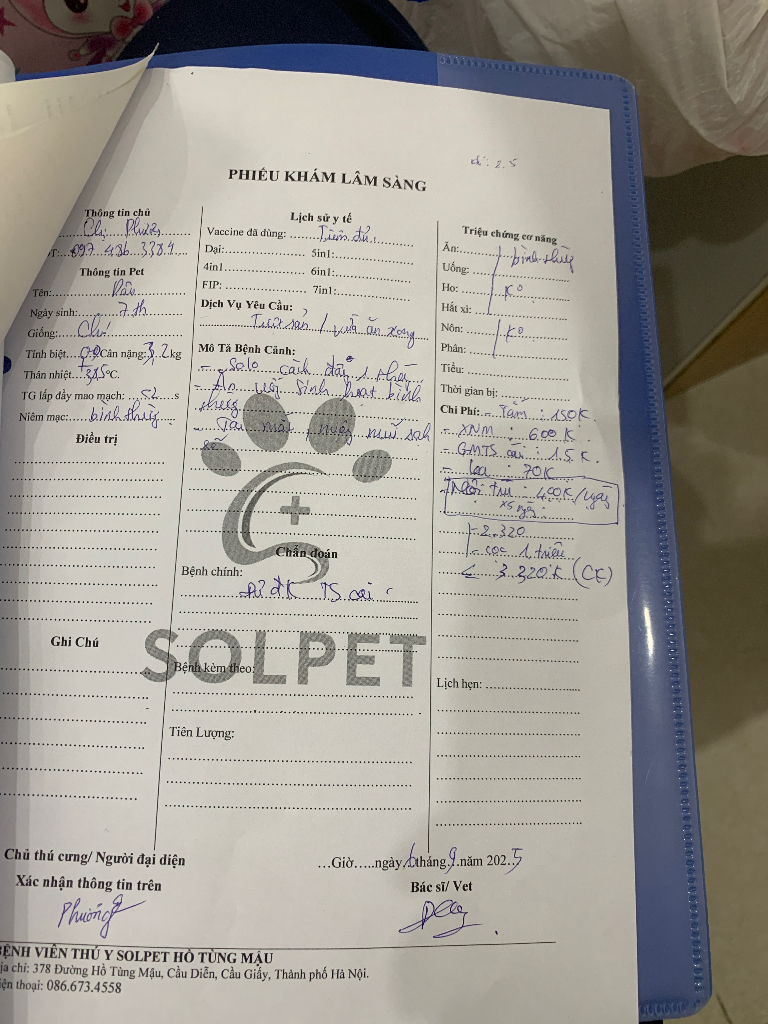 PHIẾU KHÁM LÂM SÀNG
Thông tin chủ
Chị Phương
097 486 3384
Thông tin Pet
Tên:
Ngày sinh: 7 th
Giống: Chó
Tính biệt Cân nặng: 3,2 kg
Thân nhiệt 38,5 °C.
TG lấp đầy mao mạch: <2 s
Niêm mạc: bình thường
Điều trị
Ghi Chú
Lịch sử y tế
Vaccine đã dùng: Tiêm đủ
Dại: 5in1:
4in1 6in1:
FIP: 7in1:
Dịch Vụ Yêu Cầu:
Triệt sản / vừa ăn xong
Mô Tả Bệnh Cảnh:
- Salo cách đây 1 tháng
- Ăn uống sinh hoạt bình
thường
- Tai mắt mũi sạch
sẽ
Chẩn đoán
Bệnh chính:
Đủ đk TS cái
SOLPET
Bệnh kèm theo:
Tiên Lượng:
Triệu chứng cơ năng
Ăn: bình thường
Uống:
Ho: K°
Hắt xì:
Nôn: K°
Phân:
Tiểu:
Thời gian bị:
Chi Phí: - Tắm : 150K
- XNM : 600K
- GMTS cái : 1.5K
- loa : 70K
nội trú : 400K/ngày
x5 ngày
- 2.320
- cọc 1 triệu
3.320K (CK)
Lịch hẹn:
Chủ thú cưng/ Người đại diện
Xác nhận thông tin trên
Phương
…Giờ…..ngày 6 tháng 9 năm 2025
Bác sĩ/ Vet
BỆNH VIỆN THÚ Y SOLPET HỒ TÙNG MẬU
ịa chỉ: 378 Đường Hồ Tùng Mậu, Cầu Diễn, Cầu Giấy, Thành phố Hà Nội.
iện thoại: 086.673.4558